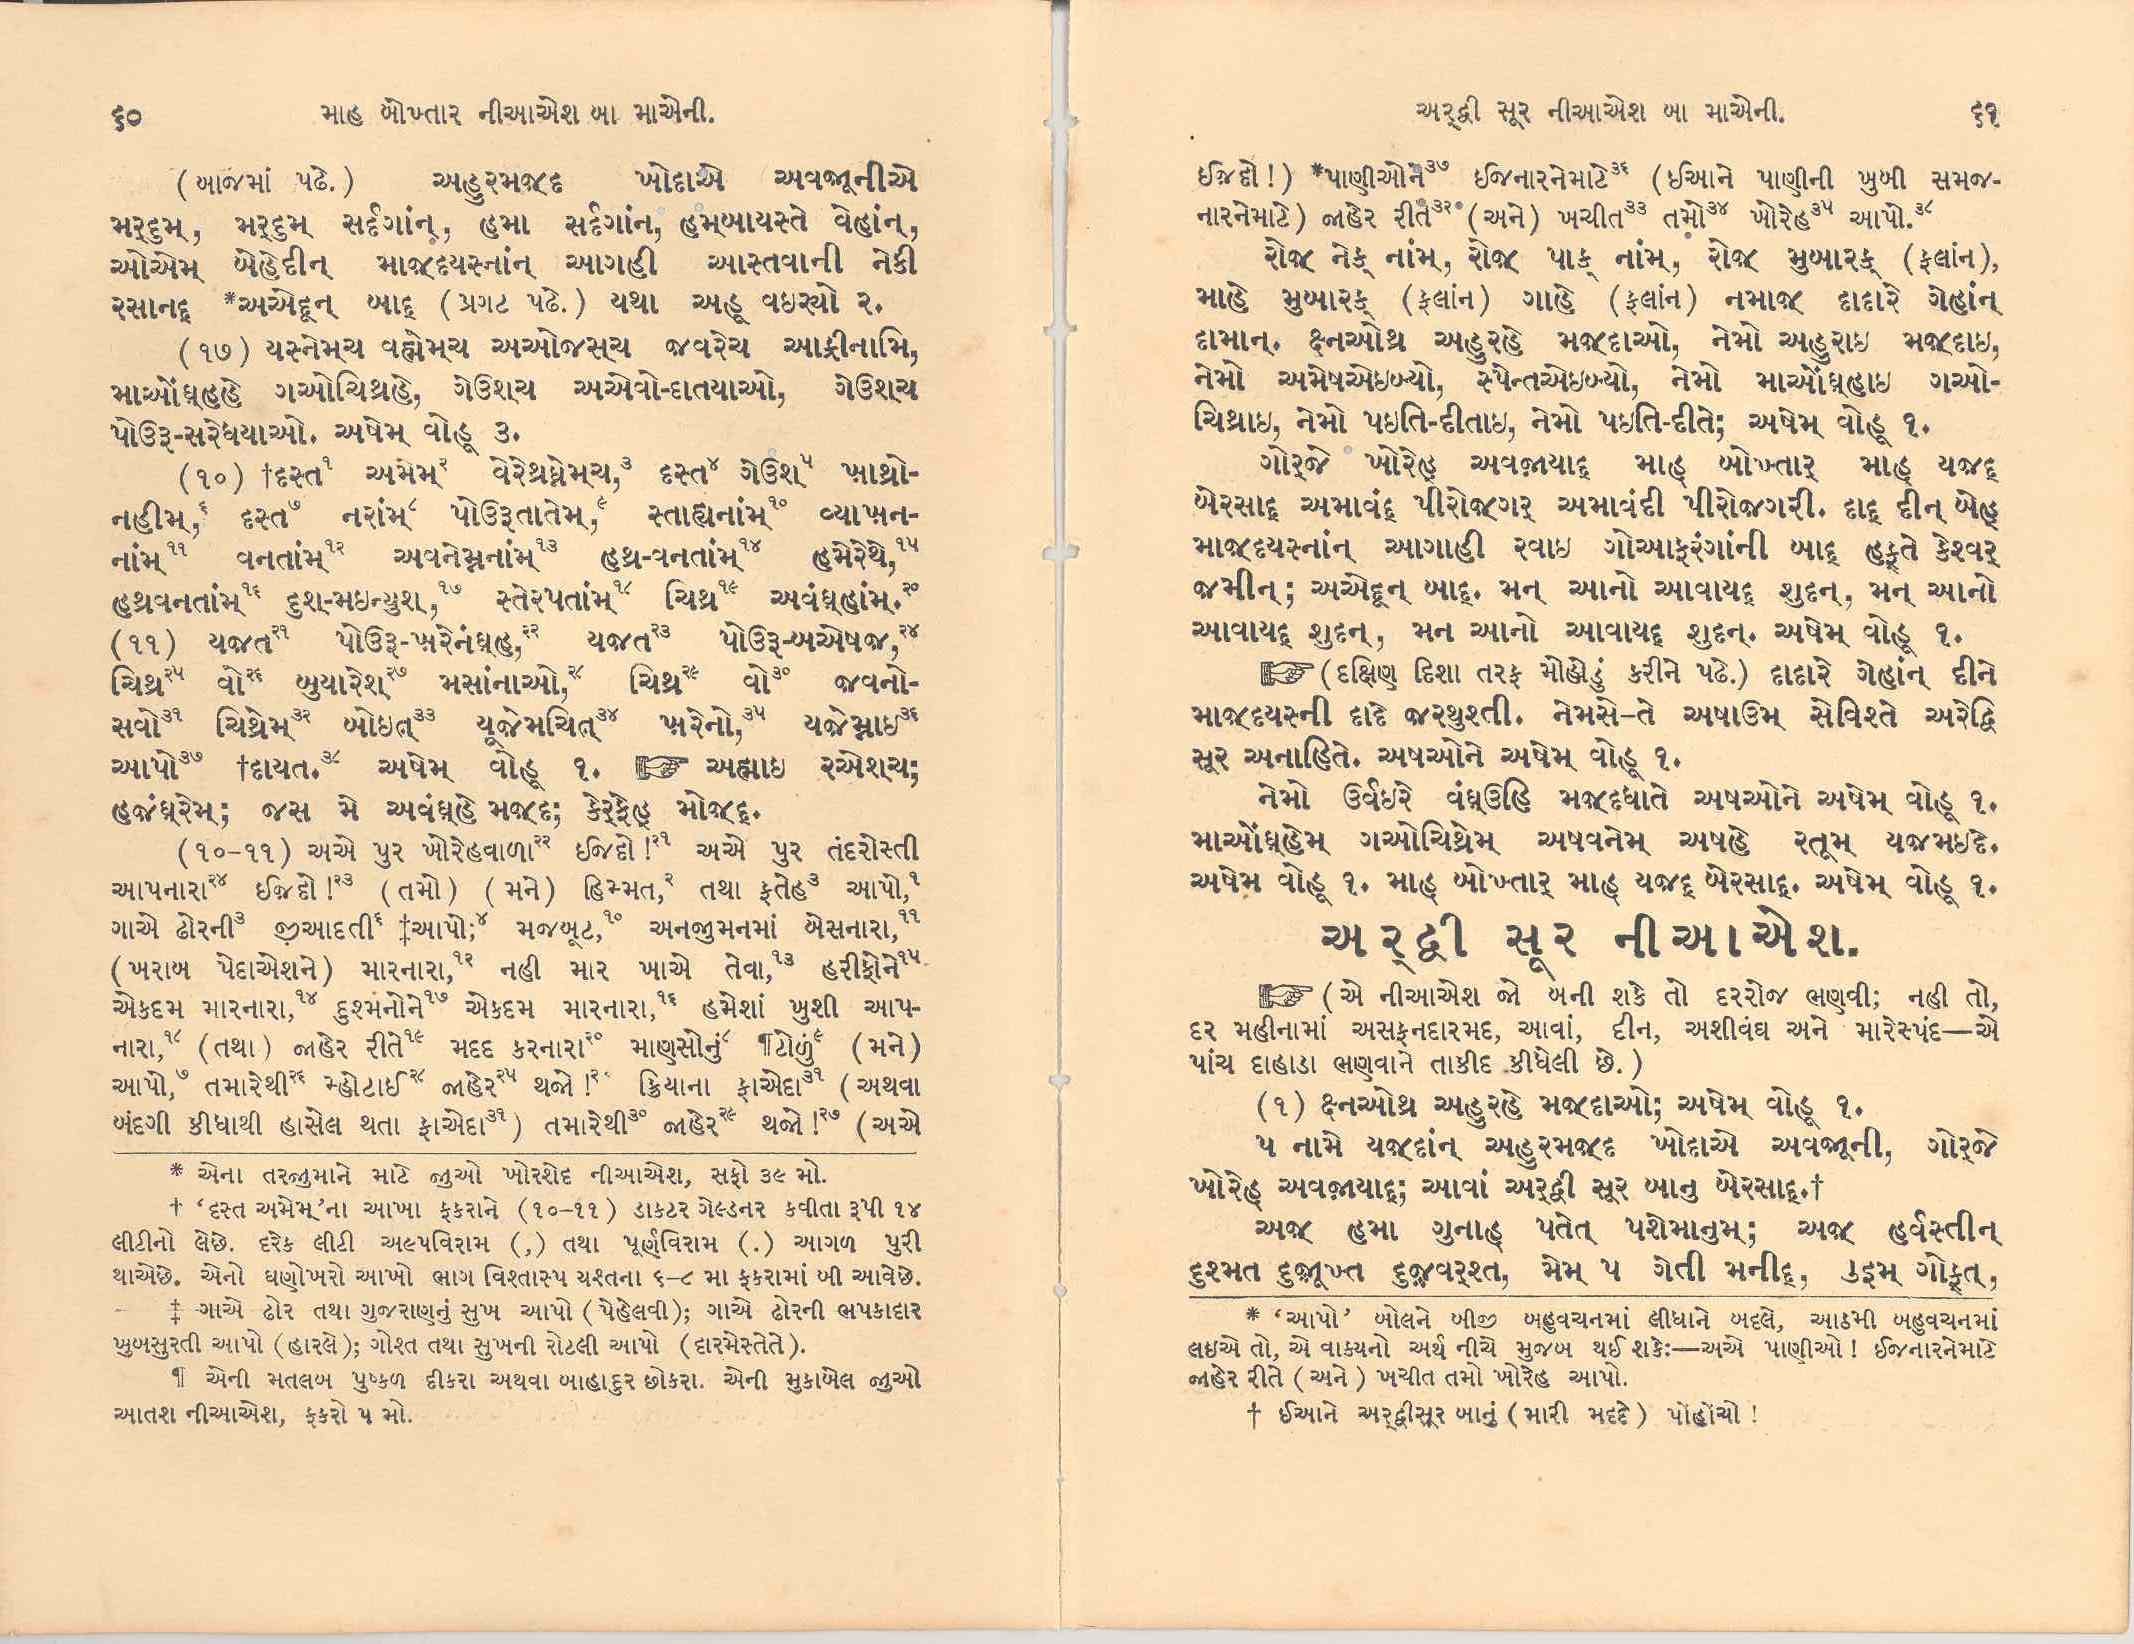 ૬૦ માહ બોખ્તાર નીઆએશ બા માએની.
(બાજમાં પઢે.) અહુરમજ઼્દ ખોદાએ અવજ઼ૂનીએ
મર્દુમ્, મર્દુમ્ સર્દગાંન્, હમા સર્દગાંન, હમ્બાયસ્તે વેહાંન્,
ઓએમ્ બેહેદીન્ માજ઼્દયસ્નાંન્ આગહી આસ્તવાની નેકી
રસાનદ્ *અએદૂન્ બાદ્ (પ્રગટ પઢે.) યથા અહૂ વઇર્યો ૨.
(૧૭) યસ્નેમ્ચ વહ્મેમ્ચ અઓજસ્ચ જવરેચ આફ્રીનામિ,
માઓંઘ્હહે ગઓચિથ્રહે, ગેઉશ્ચ અએવો-દાતયાઓ, ગેઉશ્ચ
પોઉરૂ-સરેધયાઓ. અષેમ્ વોહૂ ૩.
(૧૦) †દસ્ત૧ અમેમ્૨ વેરેથ્રઘ્નેમ્ચ,૩ દસ્ત૪ ગેઉશ્૫ ખ઼ાથ્રો-
નહીમ્,૬ દસ્ત૭ નરાંમ્૮ પોઉરૂતાતેમ્,૯ સ્તાહ્યનાંમ્૧૦ વ્યાખ઼ન-
નાંમ્૧૧ વનતાંમ્૧૨ અવનેમ્નનાંમ્૧૩ હથ્ર-વનતાંમ્૧૪ હમેરેથે,૧૫
હથ્રવનતાંમ્૧૬ દુશ્-મઇન્યુશ,૧૭ સ્તેરપતાંમ્૧૮ ચિથ્ર૧૯ અવંઘ્હાંમ્.૨૦
(૧૧) યજ઼ત૨૧ પોઉરૂ-ખ઼રેનંઘ્હ,૨૨ યજ઼ત૨૩ પોઉરૂ-બએષજ઼,૨૪
ચિથ્ર૨૫ વો૨૬ બુયારેશ્૨૭ મસાંનાઓ,૨૮ ચિથ્ર૨૯ વો૩૦ જ઼વનો-
સવો૩૧ ચિથ્રેમ્૩૨ બોઇત્૩૩ યૂજ઼ેમચિત્૩૪ ખ઼રેનો,૩૫ યજ઼ેમ્નાઇ૩૬
આપો૩૭ †દાયત.૩૮ અષેમ્ વોહૂ ૧. ☞ અહ્માઇ રએશ્ચ;
હજ઼ંઘ્રેમ્; જસ મે અવંઘ્હે મજ઼્દ; કેર્ફેહ્ મોજ઼્દ્.
(૧૦-૧૧) અએ પુર ખોરેહવાળા૨૨ ઈજ઼દો!૨૧ અએ પુર તંદરોસ્તી
આપનારા૨૪ ઈજ઼દો!૨૩ (તમો) (મને) હિમ્મત,૨ તથા ફતેહ૩ આપો,૧
ગાએ ઢોરની૩ જીઆદતી૬ ‡આપો;૪ મજબૂટ,૧૦ અનજુમનમાં બેસનારા,૧૧
(ખરાબ પેદાએશને) મારનારા,૧૨ નહી માર ખાએ તેવા,૧૩ હરીફોને૧૫
એકદમ મારનારા,૧૪ દુશ્મનોને૧૭ એકદમ મારનારા,૧૬ હમેશાં ખુશી આપ-
નારા,૧૮ (તથા) જાહેર રીતે૧૯ મદદ કરનારા૨૦ માણસોનું૮ ¶ટોળું૯ (મને)
આપો,૭ તમારેથી૨૬ મ્હોટાઈ૨૮ જાહેર૨૫ થજો!૨૮ ક્રિયાના ફાએદા૩૧ (અથવા
બંદગી કીધાથી હાસેલ થતા ફાએદા૩૧) તમારેથી૩૦ જાહેર૨૯ થજો!૨૭ (અએ
* એના તરજુમાને માટે જુઓ ખોરશેદ નીઆએશ, સફો ૩૯ મો.
† ‘દસ્ત અમેમ્’ના આખા ફકરાને (૧૦-૧૧) ડાકટર ગેલ્ડનર કવીતા રૂપી ૧૪
લીટીનો લેછે. દરેક લીટી અલ્પવિરામ (,) તથા પૂર્ણવિરામ (.) આગળ પુરી
થાએછે. એનો ઘણોખરો આખો ભાગ વિશ્તાસ્પ યશ્તના ૬-૮ મા ફકરામાં બી આવેછે.
‡ ગાએ ઢોર તથા ગુજરાણનું સુખ આપો (પેહેલવી); ગાએ ઢોરની ભપકાદાર
ખુબસુરતી આપો (હારલે); ગોશ્ત તથા સુખની રોટલી આપો (દારમેસ્તેતે).
¶ એની મતલબ પુષ્કળ દીકરા અથવા બાહાદુર છોકરા. એની મુકાબેલ જુઓ
આતશ નીઆએશ, ફકરો ૫ મો.
અર્દ્વી સૂર નીઆએશ બા માએની. ૬૧
ઈજ઼દો!) *પાણીઓને૩૭ ઈજનારનેમાટે૩૬ (ઈઆને પાણીની ખુબી સમજ-
નારનેમાટે) જાહેર રીતે૩૨ (અને) ખચીત૩૩ તમો૩૪ ખોરેહ૩૫ આપો.૩૮
રોજ઼ નેક્ નાંમ્, રોજ઼ પાક્ નાંમ્, રોજ઼ મુબારક્ (ફલાંન),
માહે મુબારક્ (ફલાંન) ગાહે (ફલાંન) નમાજ઼ દાદારે ગેહાંન્
દામાન્. ક્ષ્નઓથ્ર અહુરહે મજ઼્દાઓ, નેમો અહુરાઇ મજ઼્દાઇ,
નેમો અમેષએઇબ્યો, સ્પેન્તએઇબ્યો, નેમો માઓંઘ્હાઇ ગઓ-
ચિથ્રાઇ, નેમો પઇતિ-દીતાઇ, નેમો પઇતિ-દીતે; અષેમ્ વોહૂ ૧.
ગોર્જે ખોરેહ્ અવજ઼ાયાદ્ માહ્ બોખ્તાર્ માહ્ યજ઼દ્
બેરસાદ્ અમાવંદ્ પીરોજ઼્ગર્ અમાવંદી પીરોજગરી. દાદ્ દીન્ બેહ્
માજ઼્દયસ્નાંન્ આગાહી રવાઇ ગોઆફરંગાંની બાદ્ હફ્તે કેશ્વર્
જમીન્; અએદૂન્ બાદ્. મન્ આનો આવાયદ્ શુદન્, મન્ આનો
આવાયદ્ શુદન્, મન આનો આવાયદ્ શુદન્. અષેમ્ વોહૂ ૧.
☞ (દક્ષિણ દિશા તરફ મોહોડું કરીને પઢે.) દાદારે ગેહાંન્ દીને
માજ઼્દયસ્ની દાદે જ઼રથુશ્તી. નેમસે-તે અષાઉમ્ સેવિશ્તે અરેદ્વિ
સૂર અનાહિતે. અષઓને અષેમ્ વોહૂ ૧.
નેમો ઉર્વઇરે વંઘ્ઉહિ મજ઼્દધાતે અષઓને અષેમ્ વોહૂ ૧.
માઓંઘ્હેમ્ ગઓચિથ્રેમ્ અષવનેમ્ અષહે રતૂમ્ યજ઼મઇદે.
અષેમ વોહૂ ૧. માહ્ બોખ્તાર્ માહ્ યજ઼દ્ બેરસાદ્. અષેમ્ વોહૂ ૧.
અર્દ્વી સૂર નીઆએશ.
☞ (એ નીઆએશ જો બની શકે તો દરરોજ ભણવી; નહી તો,
દર મહીનામાં અસફનદારમદ, આવાં, દીન, અશીવંઘ અને મારેસ્પંદ—એ
પાંચ દાહાડા ભણવાને તાકીદ કીધેલી છે.)
(૧) ક્ષ્નઓથ્ર અહુરહે મજ઼્દાઓ; અષેમ્ વોહૂ ૧.
પ નામે યજ઼્દાંન્ અહુરમજ઼્દ ખોદાએ અવજ઼ૂની, ગોર્જે
ખોરેહ્ અવજ઼ાયાદ્; આવાં અર્દ્વી સૂર બાનુ બેરસાદ્.†
અજ઼ હમા ગુનાહ્ પતેત્ પશેમાનુમ્; અજ઼ હર્વસ્તીન્
દુશ્મત દુજ઼ૂખ્ત દુજ઼્વર્શ્ત, મેમ્ પ ગેતી મનીદ્, ઉઇમ્ ગોફ્ત્,
* ‘આપો’ બોલને બીજી બહુવચનમાં લીધાને બદલે, આઠમી બહુવચનમાં
લઇએ તો, એ વાક્યનો અર્થ નીચે મુજબ થઈ શકેઃ—અએ પાણીઓ! ઈજનારનેમાટે
જાહેર રીતે (અને) ખચીત તમો ખોરેહ આપો.
† ઈઆને અર્દ્વીસૂર બાનું (મારી મદદે) પોંહોંચો!